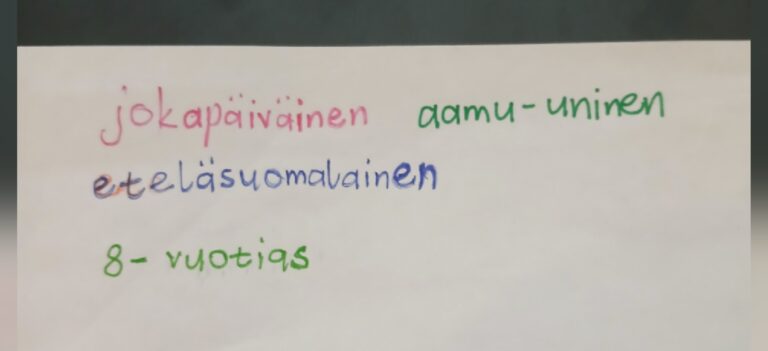 jokapäiväinen aamu-uninen
eteläsuomalainen
8- vuotias